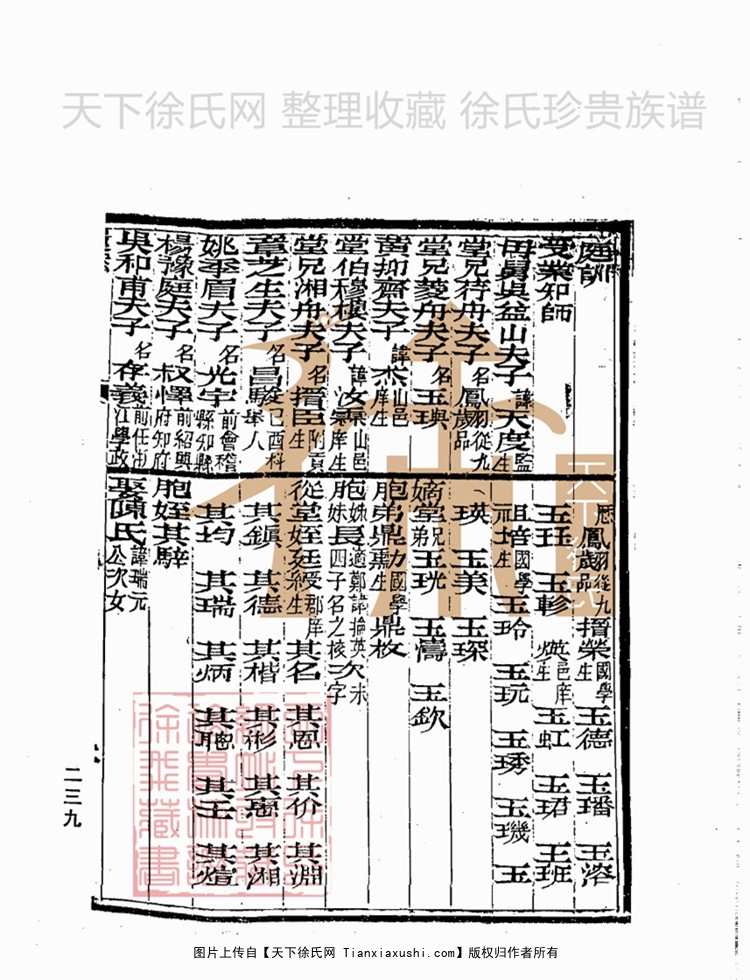 天下徐氏网 整理收藏 徐氏珍贵族谱
庭訓
受業知師
母舅吳益山夫子諱天度監生
堂兄符舟夫子名鳳翙從九歲品
堂兄菱舟夫子名玉璵
苗抑齋夫子諱杰山邑庠生
堂伯穆樓夫子諱汝霖山邑庠生
堂兄湘舟夫子名搢臣附貢生
章芝生夫子名昌駿己酉科舉人
姚平眉夫子名光宇前會稽縣知縣
楊豫庭夫子名叔懌前紹興府知府
吳和甫夫子名存義前任浙江學政
鳳翙從九歲品 搢榮國學生 玉德 玉璠 玉溶
玉珏 玉軫 煐邑庠生 玉虹 玉珺 玉班
祖培國學生 玉玲 玉玩 玉琇 玉璣 玉
瑛 玉美 玉琛
嫡堂兄弟 玉珖 玉濤 玉欽
胞弟鼎勳國學生 鼎枚
胞姊妹 長適鄭諱掄英四子名之棪 次未字
從堂姪廷綬郡庠生 其名 其恩 其价 其淵
其鎮 其德 其楷 其彬 其惠 其湘
其均 其瑞 其炳 其聰 其壬 其煊
胞姪其騂
娶陳氏諱瑞元公次女
二三九
图片上传自【天下徐氏网 Tianxiaxushi.com】版权归作者所有